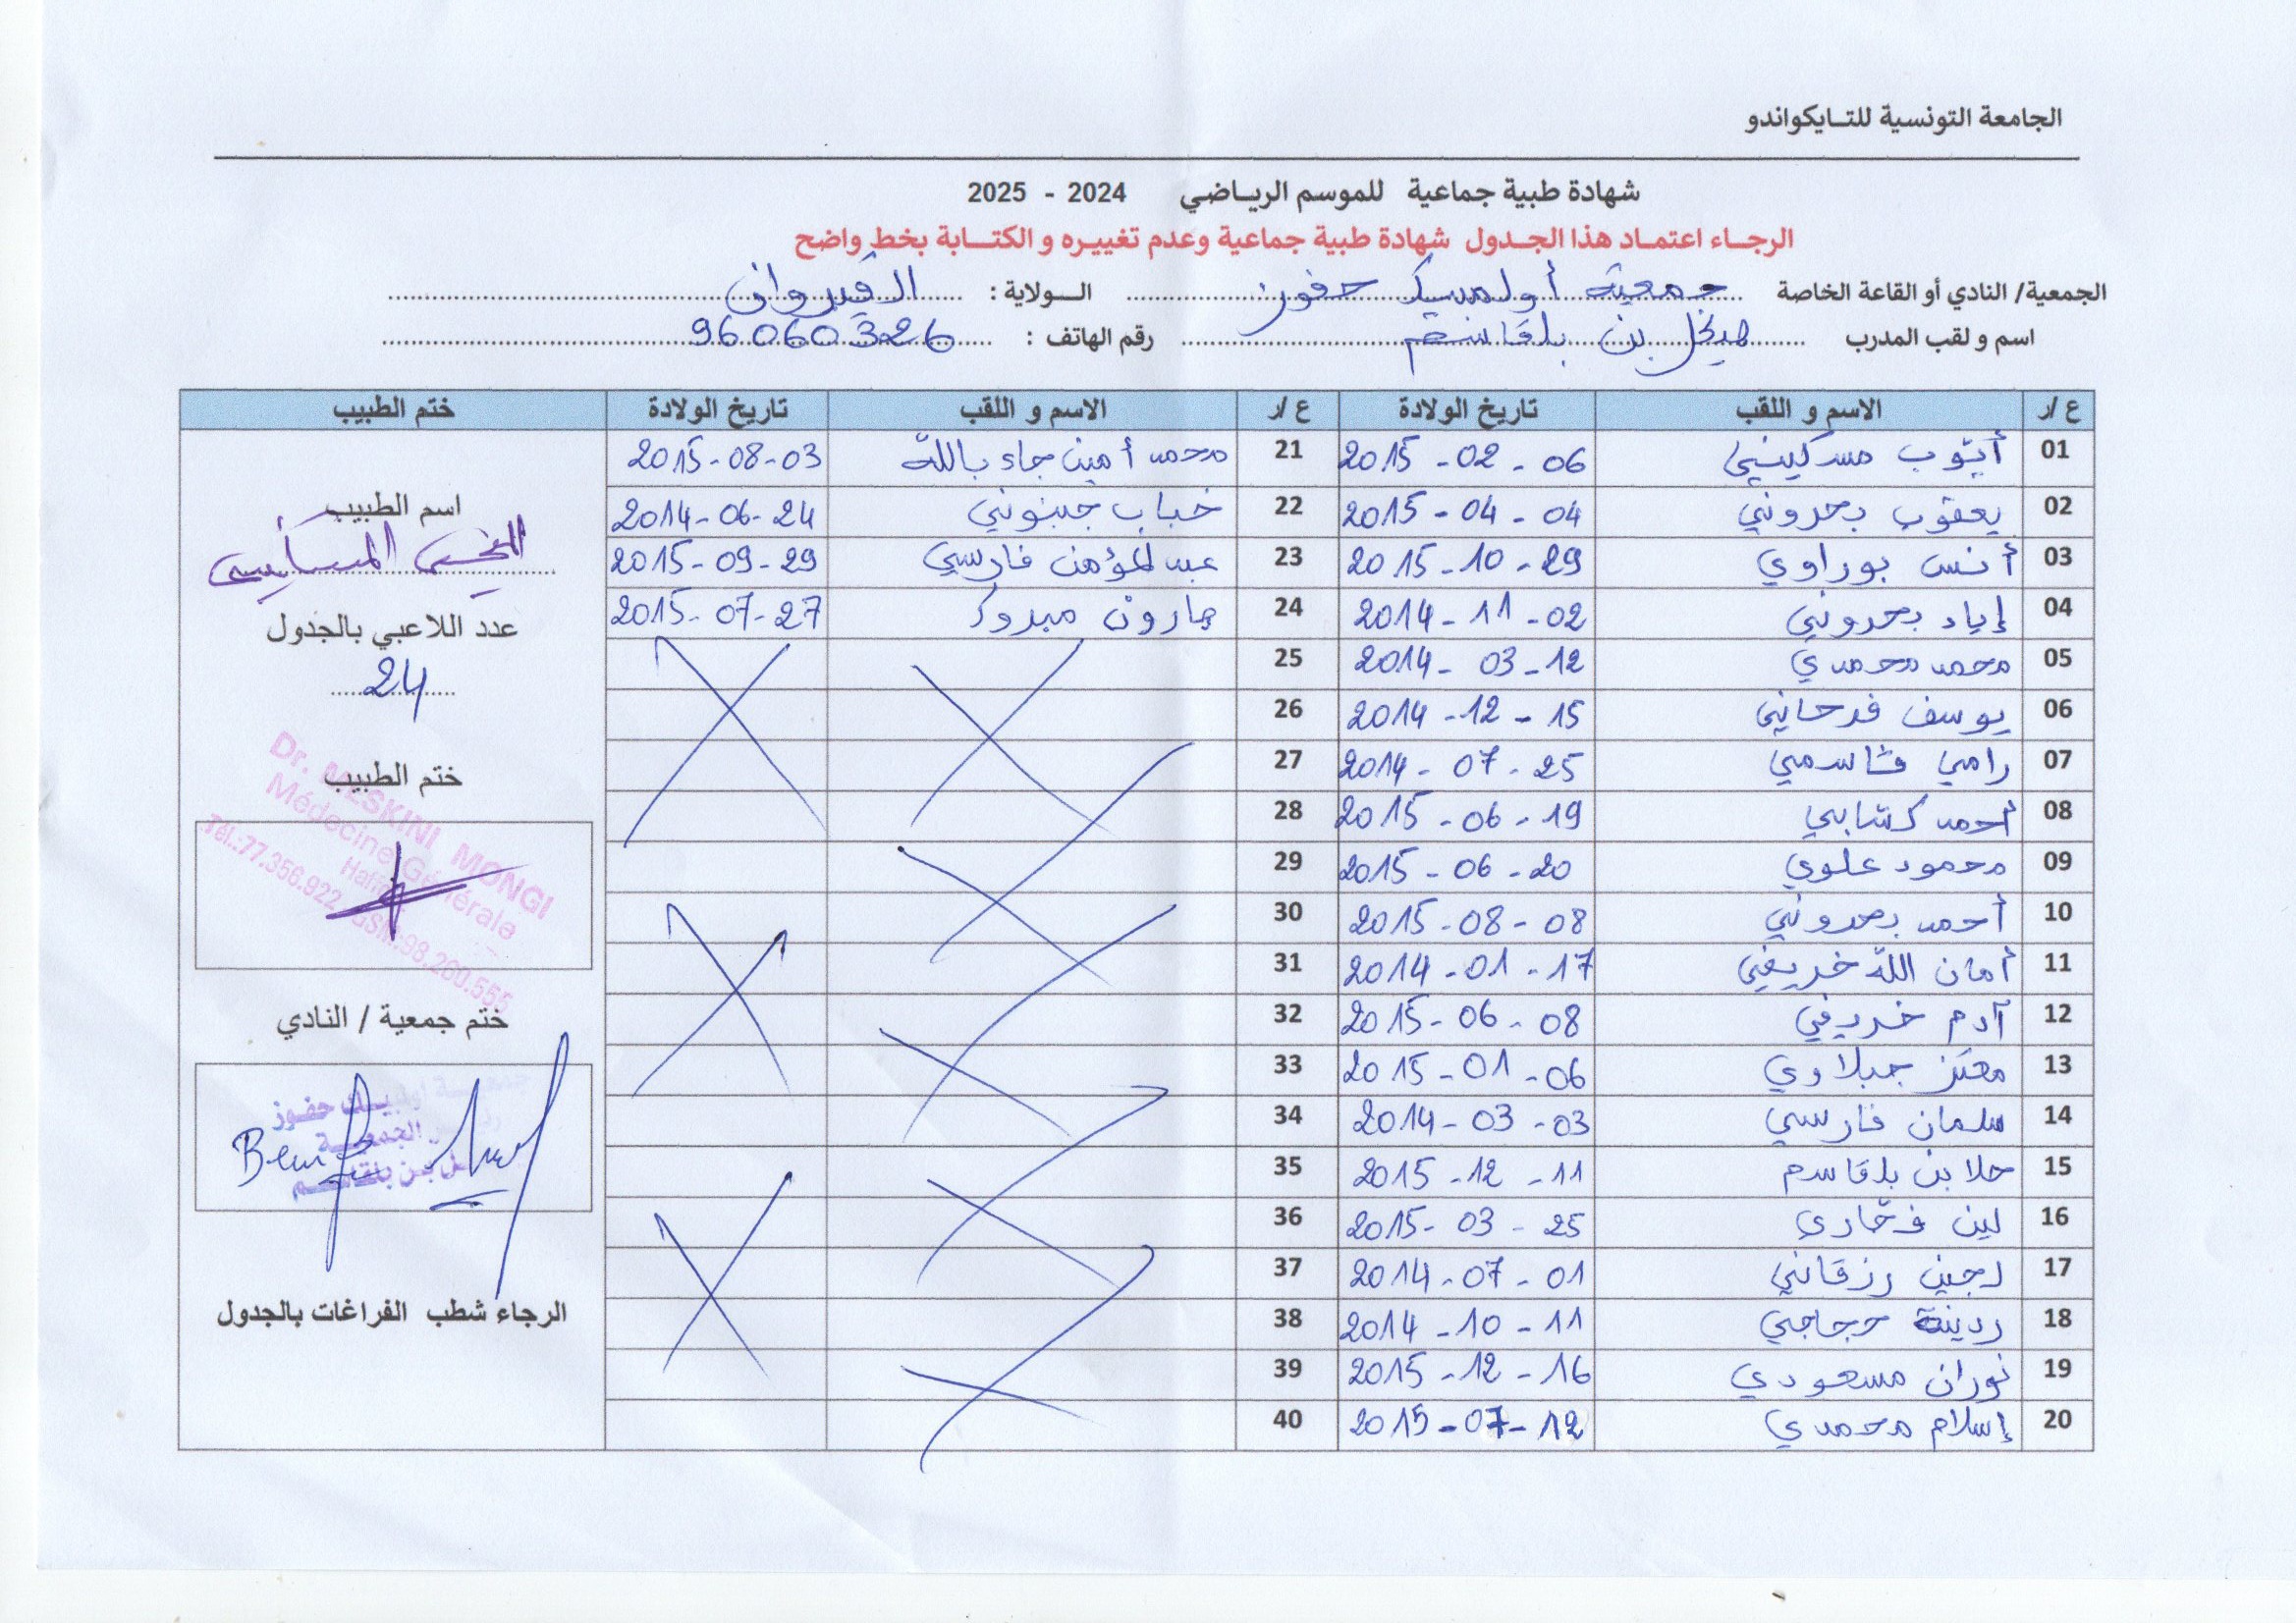 الجامعة التونسية للتايكواندو
شهادة طبية جماعية للموسم الرياضي 2024 - 2025
الرجاء اعتماد هذا الجدول شهادة طبية جماعية وعدم تغييره و الكتابة بخط واضح
الجمعية/ النادي أو القاعة الخاصة جمعية أولمبيك حفوز الولاية : القيروان
اسم و لقب المدرب ميخل بن بلقاسم رقم الهاتف : 96060326
ع /ر الاسم و اللقب تاريخ الولادة ع /ر الاسم و اللقب تاريخ الولادة ختم الطبيب
01 أيوب مسكيني 2015 - 02 - 06 21 محمد أمين جاء بالله 2015-08-03
02 يعقوب بحروني 2015 - 04 - 04 22 خباب جنوني 2014-06-24
03 أنس بوراوي 2015 - 10 - 29 23 عبد المؤمن فارسي 2015-09-29
04 إياد بحروني 2014 - 11 - 02 24 مبروك 2015-07-27
05 محمد محمدي 2014 - 03 - 12 25
06 يوسف فرحاني 2014 - 12 - 15 26
07 رامي قاسمي 2014 - 07 - 25 27
08 أحمد 2015 - 06 - 19 28
09 محمود علوي 2015 - 06 - 20 29
10 أحمد بحروني 2015 - 08 - 08 30
11 أمان الله خريفي 2014 - 01 - 17 31
12 آدم خريفي 2015 - 06 - 08 32
13 معتز جبلاوي 2015 - 01 - 06 33
14 سلمان فارسي 2014 - 03 - 03 34
15 حلا بن بلقاسم 2015 - 12 - 11 35
16 لين 2015 - 03 - 25 36
17 لجين رزقاني 2014 - 07 - 01 37
18 ردينة حجاجي 2014 - 10 - 11 38
19 نوران مسعودي 2015 - 12 - 16 39
20 إسلام محمدي 2015 - 07 - 12 40
اسم الطبيب
عدد اللاعبي بالجدول
24
ختم الطبيب
Dr. MESKINI MONGI
Médecine Générale
Tél.:77.356.922 GSM:98.260.555
ختم جمعية / النادي
حفوز
الجمعية
بن بلقاسم
الرجاء شطب الفراغات بالجدول